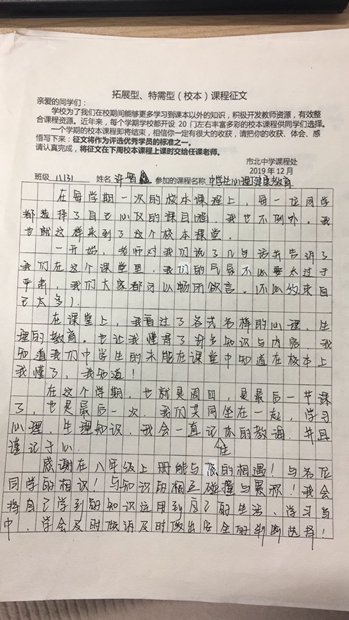 拓展型、特需型(校本)课程征文
亲爱的同学们:
学校为了我们在校期间能够更多学习到课本以外的知识,积极开发教师资源,有效整
合课程资源。近年来,每个学期学校都开设 20 门左右丰富多彩的校本课程供同学们选择。
一个学期的校本课程即将结束,相信你一定有很大的收获,请把你的收获、体会、感
悟写下来;征文将作为评选优秀学员的标准之一。
请认真完成,将征文在下周校本课程上课时交给任课老师。
市北中学课程处
2019 年 12 月
班级 姓名 许 参加的课程名称 中学生心理健康教育
在每学期一次的校本课程上,每一位同学
都选择了自己心仪的课题,我也不例外。我
也就这样来到了这个校本课堂。
一开始,老师对我们说了几句话并告诉了
我们在这个课堂里,我们的氛围不必要太过于
严肃,我们大家都可以畅所欲言。(不必约束自
己太多)
在课堂上,我看过了各式各样的心理、生
理的教育。也让我懂得了许多知识与内容。我
知道我们中学生的不能在课堂中知道在校本上
我懂了,我知道!
在这个学期,也就是周四,是最后一节课
了,也是最后一次,我们共同坐在一起,学习
心理、生理知识,我会一直记住的教调,并且
谨记于心。
感谢在八年级上册能与你的相遇!与各位
同学的相识!与知识的相互碰撞与累积!我会
将自己学到的知识运用到自己的生活、学习当
中,学会及时倾诉及时做出安全的判断选择!